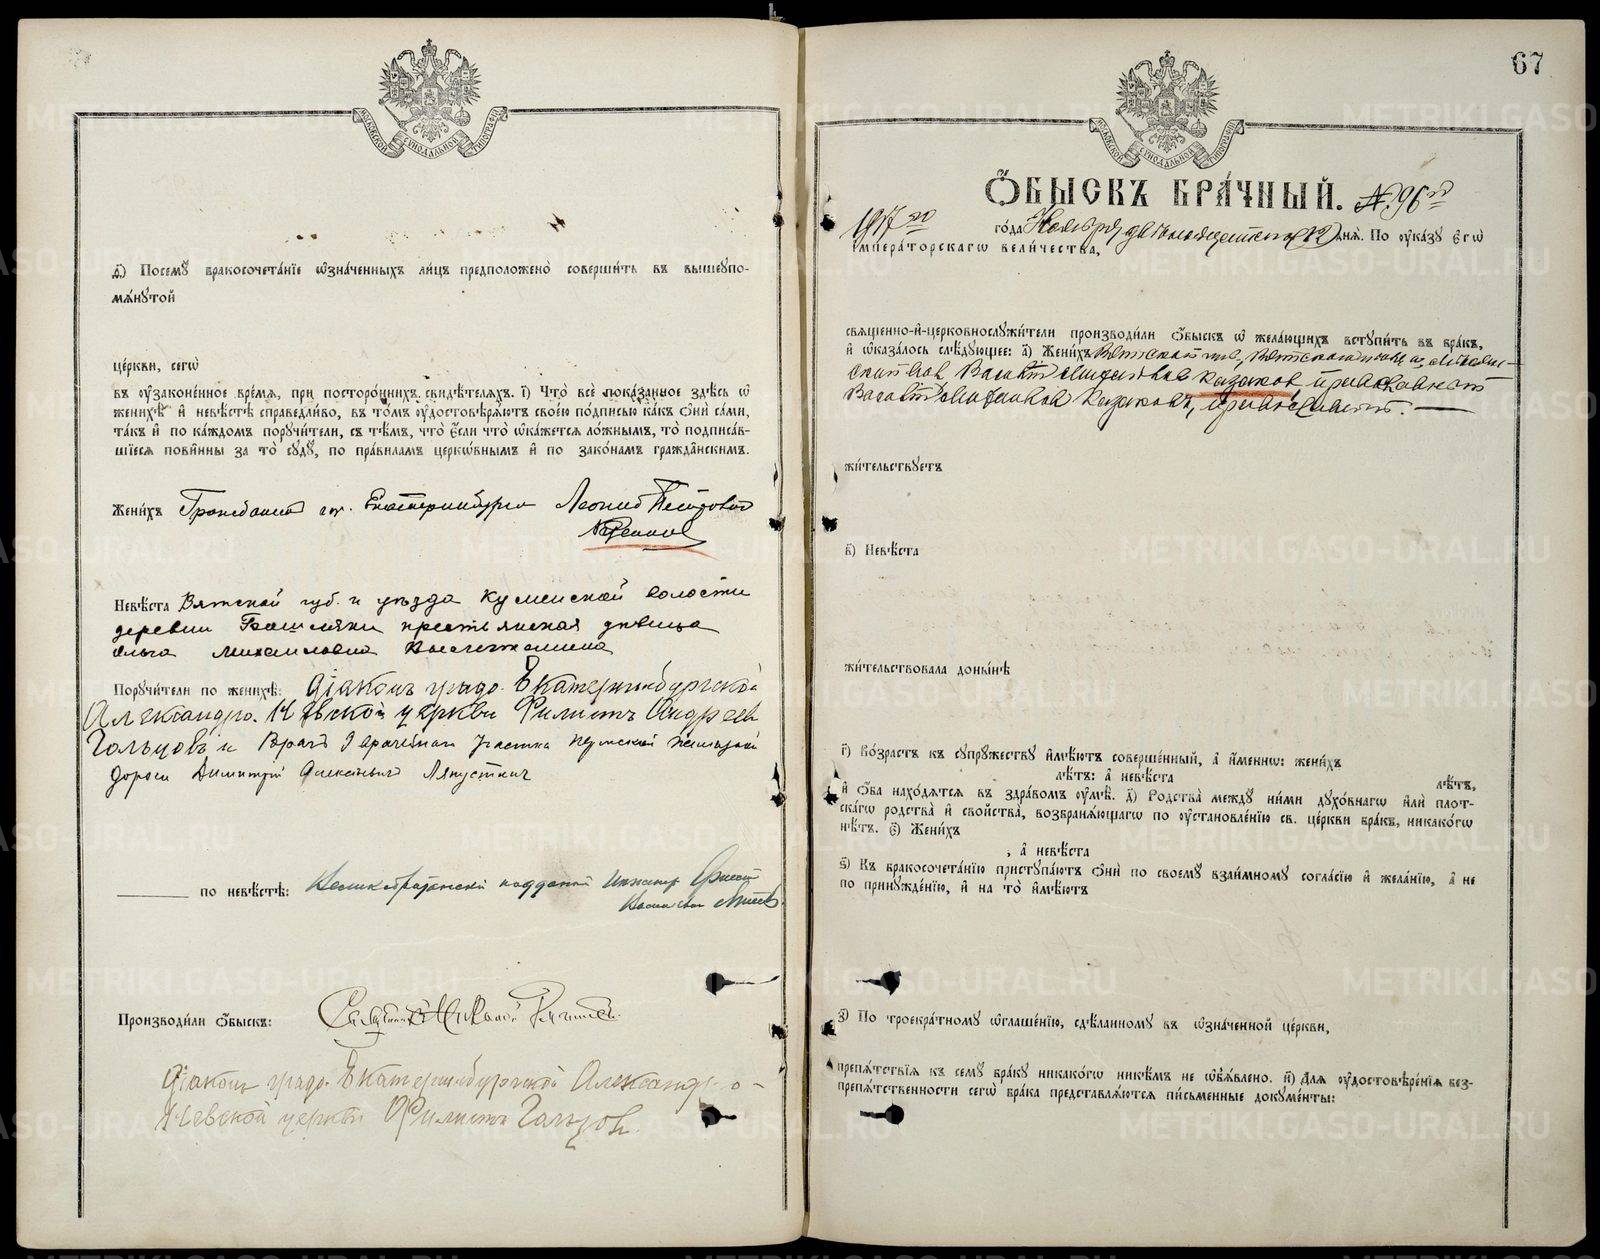 МОСКОВСКОЙ СУНОДАЛЬНОЙ ТИПОГРАФІИ
д҃) Посемꙋ̀ бракосочета́нїе ѡ҆зна́ченныхъ ли́цъ предположено̀ соверши́ть въ вышеꙋпо-
мѧ́нꙋтой
це́ркви, сегѡ̀
въ ᲂу҆зако́ненное вре́мѧ, при посторо́ннихъ свидѣ́телѧхъ. і҃) Что̀ всѐ пока́занное здѣ́сь ѡ
женихѣ̀ и҆ невѣ́стѣ справедли́во, въ то́мъ ᲂу҆достовѣрѧ́ютъ свое́ю по́дписью ка́къ ѻ҆нѝ са́ми,
та́къ и҆ по ка́ждомъ порꙋчи́тели, съ тѣ́мъ, что̀ є҆́сли что̀ ѡ҆ка́жетсѧ ло́жнымъ, то̀ подписа́в-
шїесѧ пови́нны за то̀ сꙋдꙋ̀, по пра́виламъ церко́внымъ и҆ по зако́намъ гражда́нскимъ.
Жени́хъ Гражданинъ гор. Екатеринбурга Леонид Петрович
Невѣ́ста Вятской губ. и уѣзда Куменской волости
деревни крестьянская дѣвица
Ольга Михаиловна
Порꙋчи́тели по женихѣ̀: Діаконъ градо-Екатеринбургской
Александро-Невской церкви Филиппъ Андреев
Гольцовъ и Врачъ врачебнаго участка Пермской желѣзной
дороги Димитрій Ляпустин
по невѣ́стѣ: Великобританскій подданый Инженер Эрнест
Произвѡди́ли ѻ҆́быскъ: Священникъ Николай
Діаконъ градо-Екатеринбургской Александро-
Невской церкви Филиппъ Гольцов.
67
МОСКОВСКОЙ СУНОДАЛЬНОЙ ТИПОГРАФІИ
Ѻ҆́БЫСКЪ БРА́ЧНЫЙ. № 96й
1917го го́да Ноября двенадцатаго (12) днѧ̀. По ᲂу҆ка́зꙋ є҆гѡ̀
и҆мпера́торскагѡ вели́чества,
свѧще́нно-и҆-церковнослꙋжи́тели производи́ли ѻ҆́быскъ ѡ жела́ющихъ встꙋпи́ть въ бра́къ,
и҆ ѡ҆каза́лось слѣ́дꙋющее: а҃) Жени́хъ Вятской губ., Вятскаго
Казаков, православнаго
Казаковъ, православнаго.
жи́тельствꙋетъ
в҃) Невѣ́ста
жи́тельствовала донынѣ̀
г҃) Во́зрастъ къ сꙋпрꙋ́жествꙋ и҆мѣ́ютъ соверше́нный, а҆ и҆́меннѡ: жени́хъ
лѣ́тъ: а҆ невѣ́ста лѣ́тъ,
и҆ ѻ҆́ба нахо́дѧтсѧ въ здра́вомъ ᲂу҆мѣ̀. д҃) Родства̀ междꙋ̀ ни́ми дꙋхо́внагѡ и҆лѝ пло́т-
скагѡ родства̀ и҆ сво́йства, возбранѧ́ющагѡ по ᲂу҆становле́нїю св. це́ркви бра́къ, никако́гѡ
нѣ́тъ. є҃) Жени́хъ
; а҆ невѣ́ста
ѕ҃) Къ бракосочета́нїю пристꙋпа́ютъ ѻ҆нѝ по своемꙋ̀ взаи́мномꙋ согла́сїю и҆ жела́нїю, а҆ не
по принꙋжде́нїю, и҆ на то̀ и҆мѣ́ютъ
з҃) По троекра́тномꙋ ѡ҆глаше́нїю, сдѣ́ланномꙋ въ ѡ҆зна́ченной це́ркви,
препѧ́тствїѧ къ семꙋ̀ бра́кꙋ никако́гѡ никѣ́мъ не ѡ҆бъѧ́влено. и҃) Длѧ̀ ᲂу҆достовѣре́нїѧ без-
препѧ́тственности сегѡ̀ бра́ка представлѧ́ютсѧ пи́сьменные докꙋме́нты:
METRIKI.GASO-URAL.RU